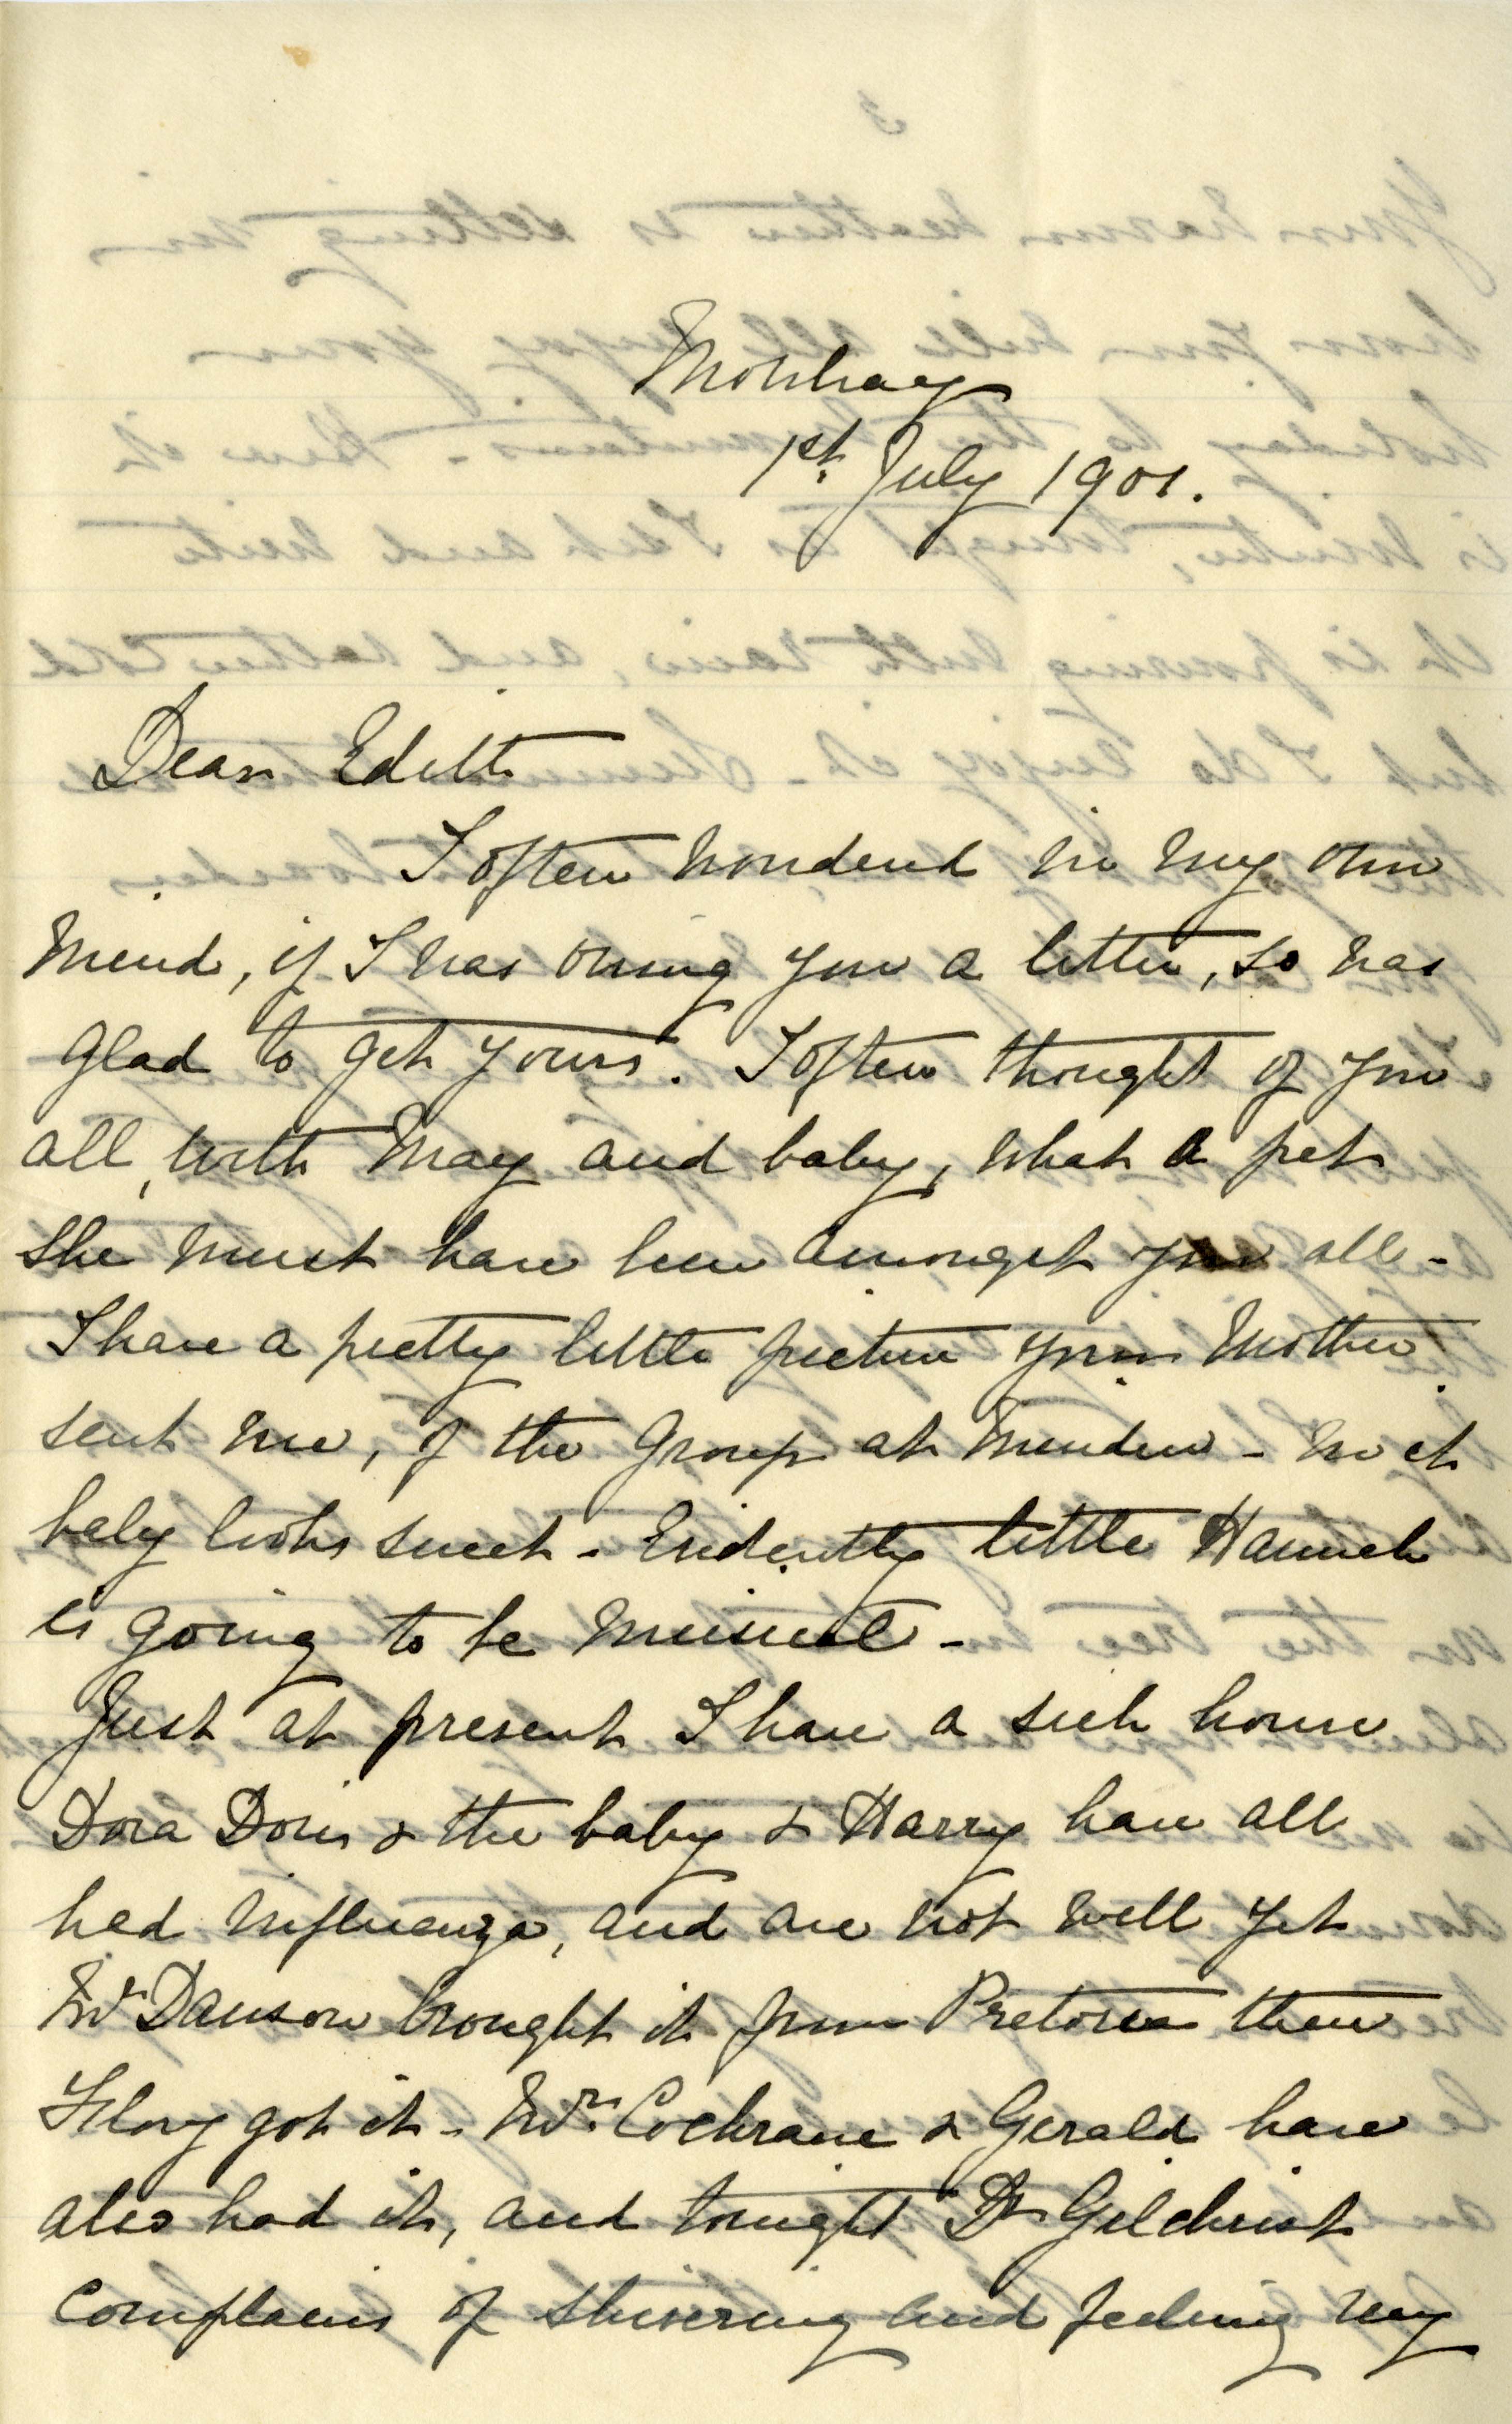 Mowbray
1st July 1901.
Dear Edith
I often wondered in my own
mind, if I was owing you a letter, so was
glad to get yours. I often thought of you
all, with May and baby, what a pet
she must have been amongst you all -
I have a pretty little picture your Mother
sent me, of the Group at - in it
baby looks sweet - Evidently little Hannah
is going to be musical -
Just at present I have a sick house
Dora Doris & the baby & Harry have all
had influenza, and are not well yet
Mr Dawson brought it from Pretoria then
Flory got it - Mrs Cochrane & Gerald have
also had it, and tonight Dr Gilchrist
complains of shivering and feeling very